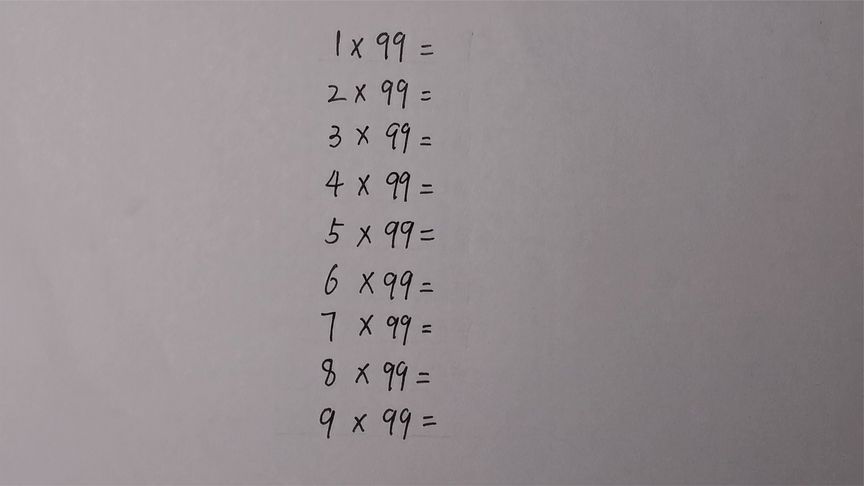 1 × 99 =
2 × 99 =
3 × 99 =
4 × 99 =
5 × 99 =
6 × 99 =
7 × 99 =
8 × 99 =
9 × 99 =